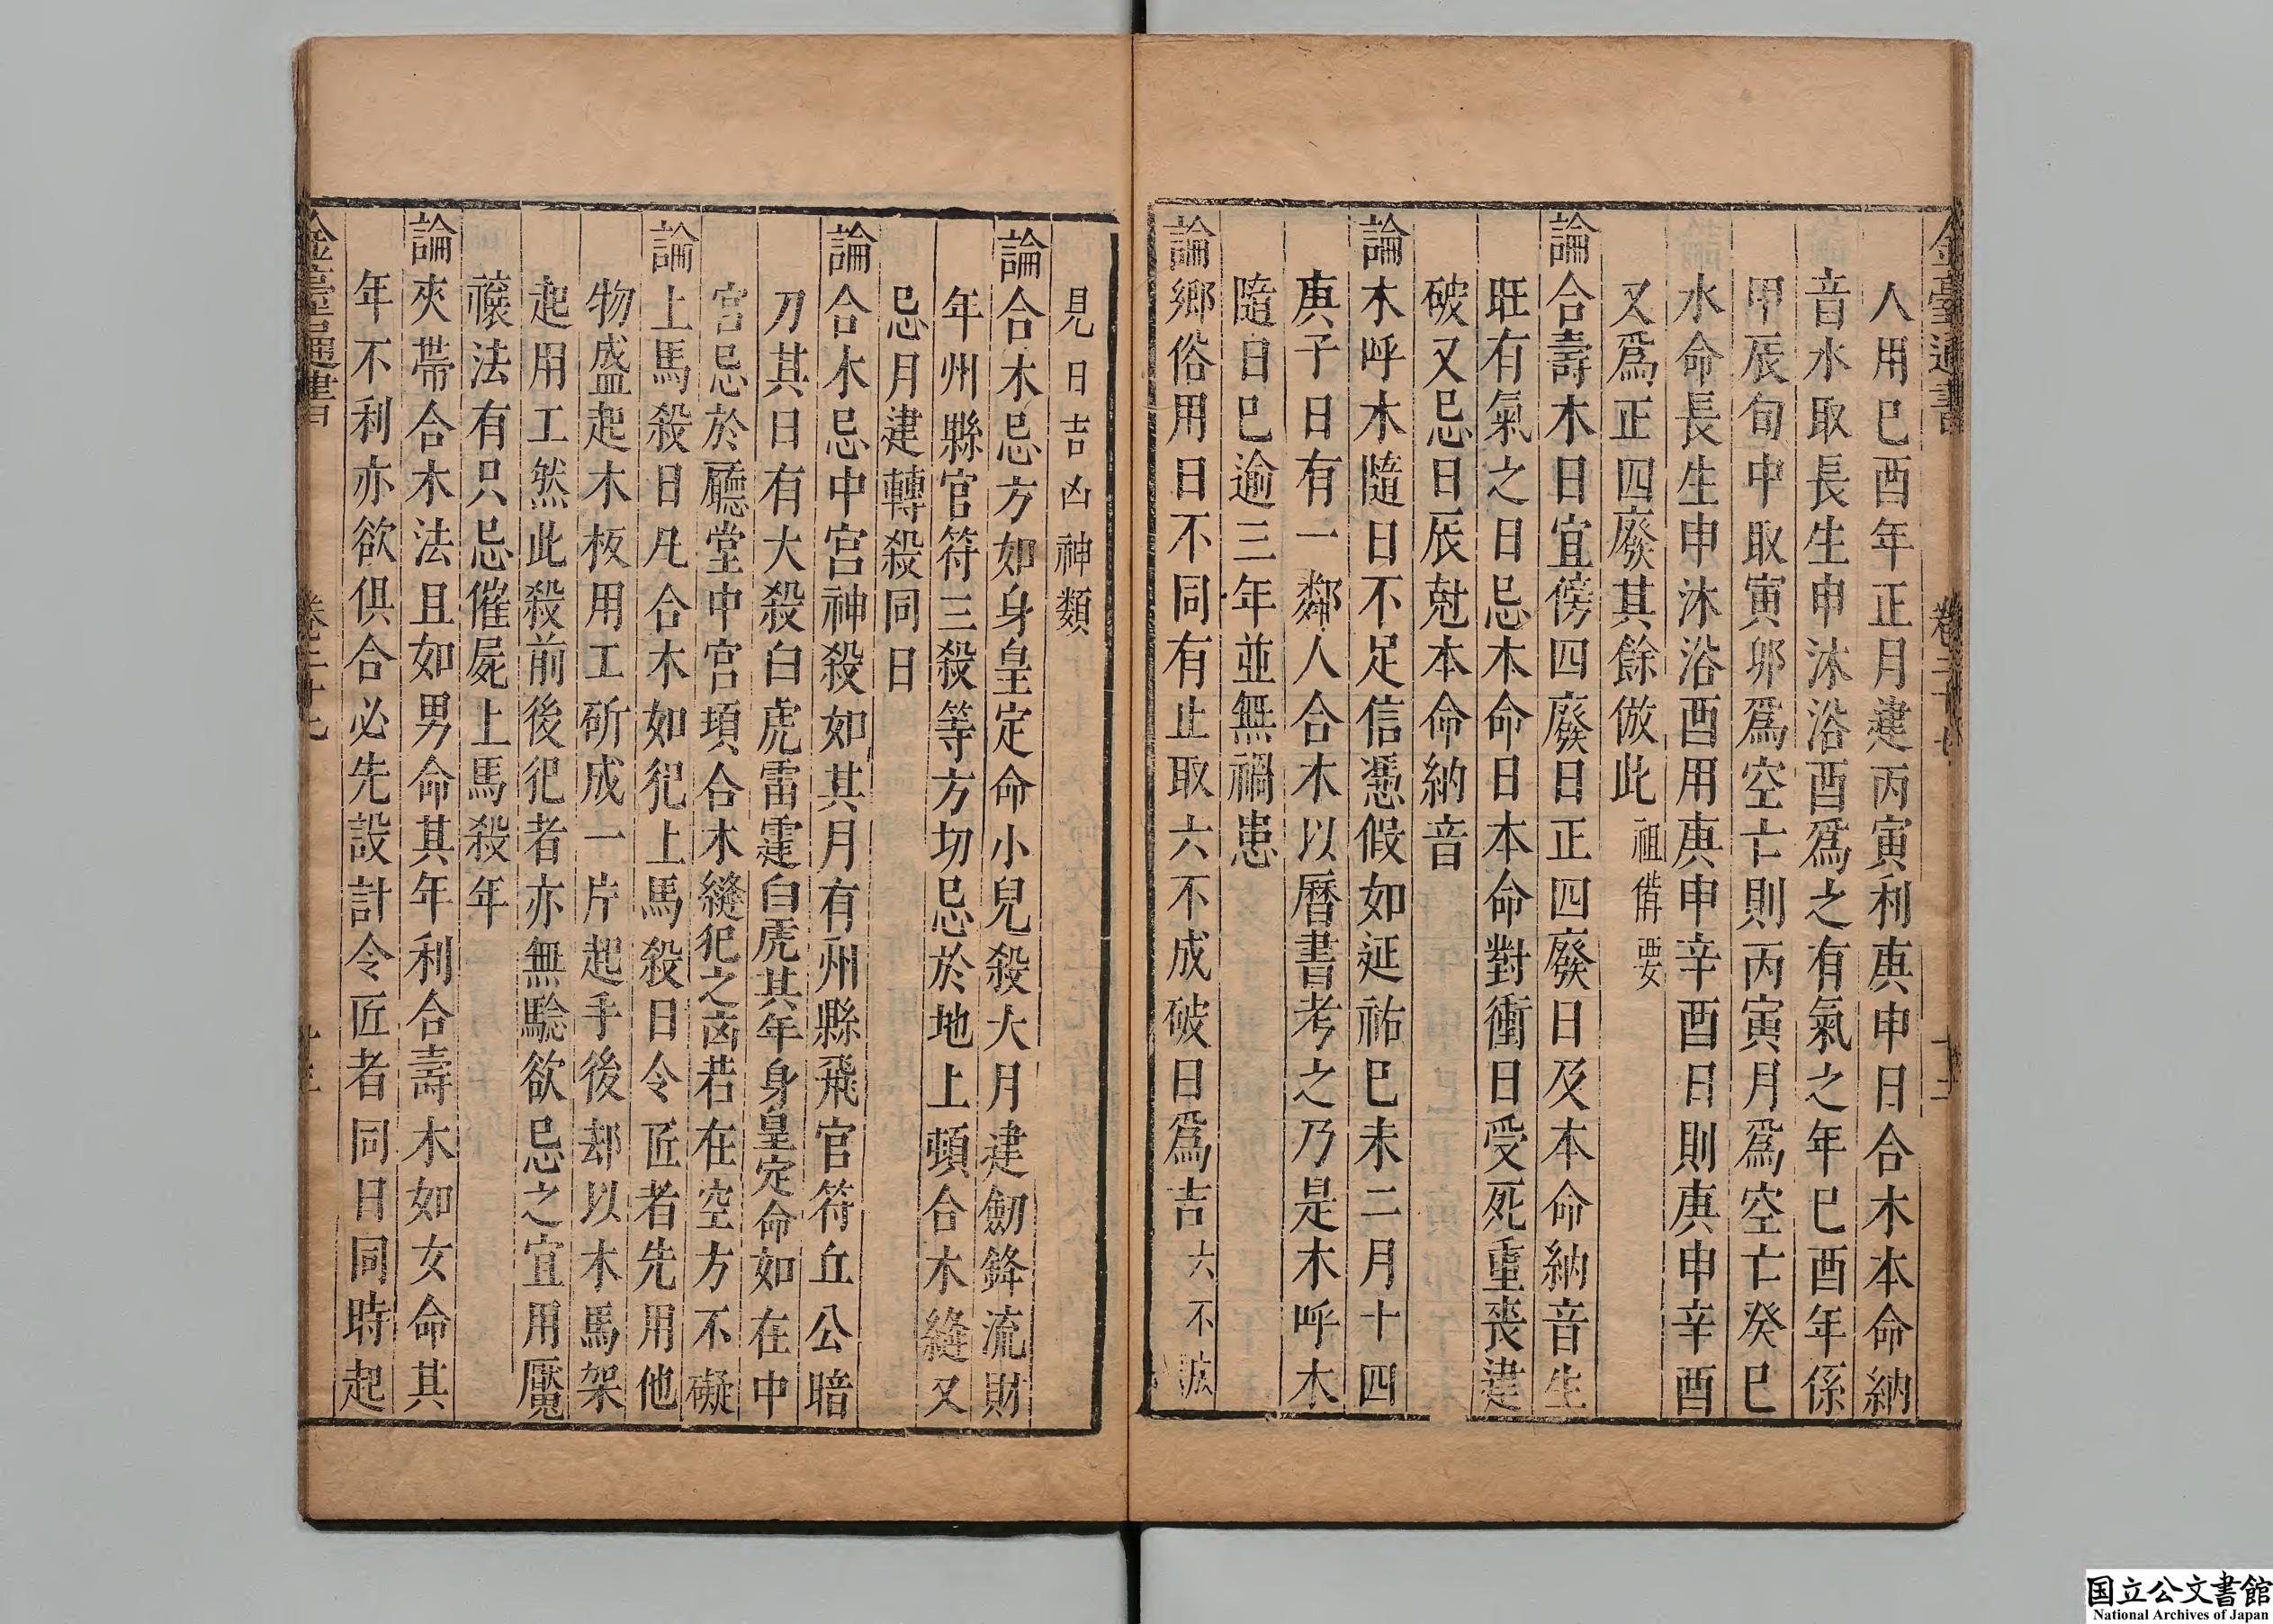 金臺通書 卷二十七 十二
人用巳酉年正月建丙寅利庚申日合木本命納
音水取長生申沐浴酉爲之有氣之年巳酉年係
甲辰旬中取寅卯爲空亡則丙寅月爲空亡癸巳
水命長生申沐浴酉用庚申辛酉日則庚申辛酉
又爲正四廢其餘倣此祖備要
論合壽木日宜傍四廢日正四廢日及本命納音生
旺有氣之日忌木命日本命對衝日受死重喪建
破又忌日辰尅本命納音
論木呼木隨日不足信憑假如延祐巳未二月十四
庚子日有一鄰人合木以曆書考之乃是木呼木
隨日巳逾三年並無禍患
論鄉俗用日不同有止取六不成破日爲吉六不
見日吉凶神類
論合木忌方如身皇定命小兒殺大月建劒鋒流財
年州縣官符三殺等方切忌於地上頓合木縫又
忌月建轉殺同日
論合木忌中宫神殺如其月有州縣飛官符丘公暗
刀其日有大殺白虎雷霆白虎其年身皇定命如在中
宫忌於廳堂中宫頓合木縫犯之凶若在空方不礙
論上馬殺日凡合木如犯上馬殺日令匠者先用他
物盛起木板用工斫成一片起手後却以木馬架
起用工然此殺前後犯者亦無驗欲忌之宜用魘
禳法有只忌催屍上馬殺年
論夾帶合木法且如男命其年利合壽木如女命其
年不利亦欲俱合必先設計令匠者同日同時起
金臺通書 卷二十七
国立公文書館
National Archives of Japan